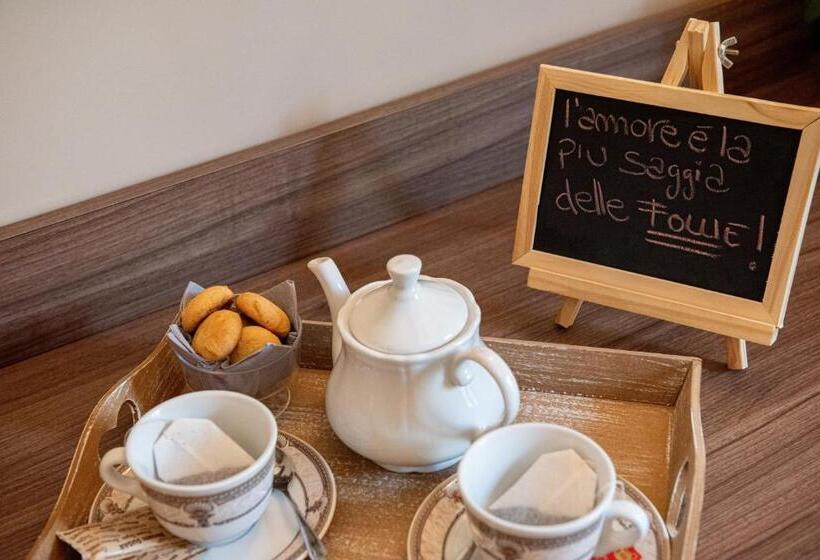 l'amore è la
più saggia
delle FOLLIE!